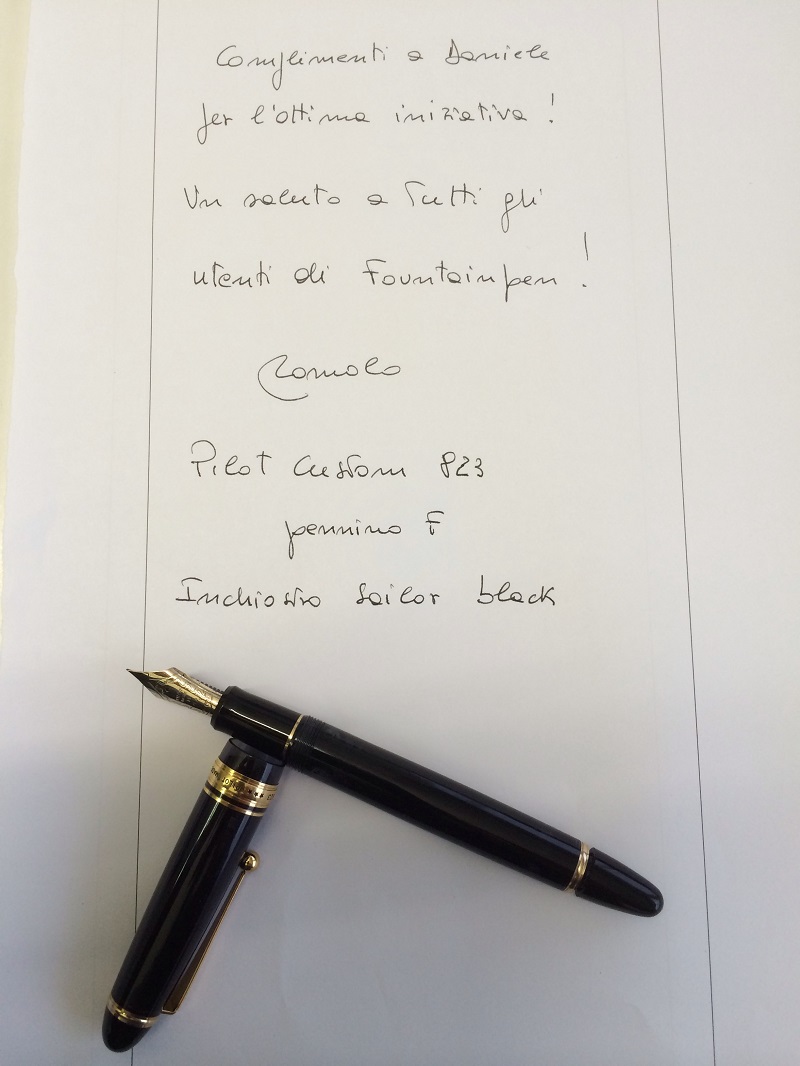 Complimenti a Daniele
per l'ottima iniziativa!
Un saluto a Tutti gli
utenti di Fountainpen!
Romolo
Pilot Custom 823
pennino F
Inchiostro Sailor black